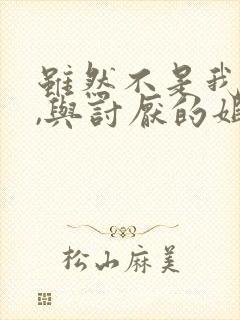 雖然不是我
,與討厭的姐
松山麻美